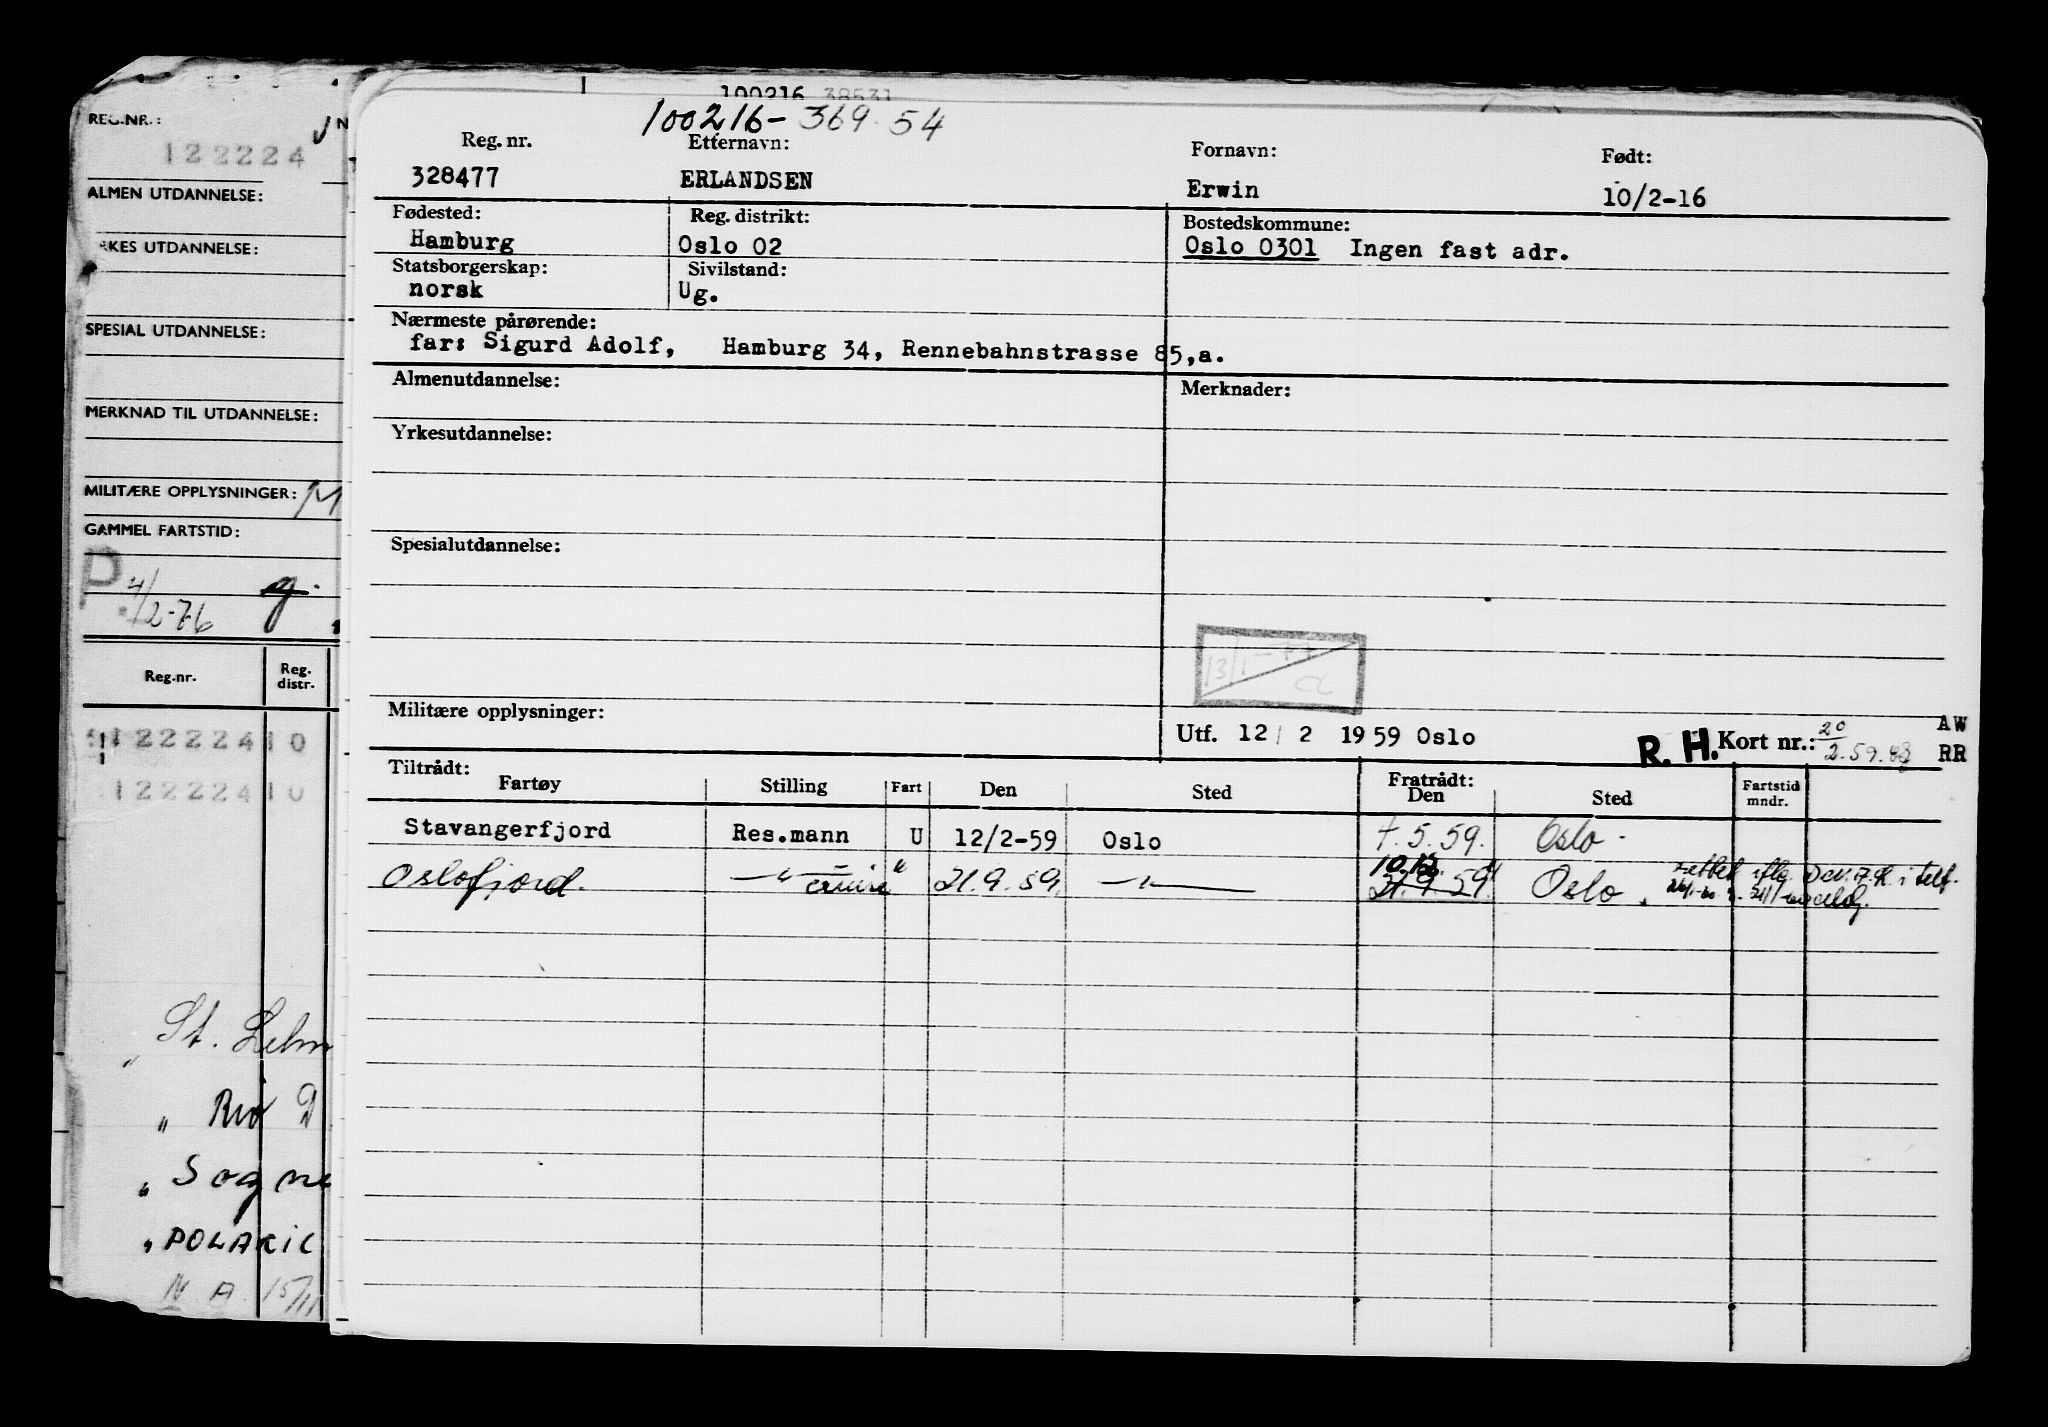 100216 38531
REG.NR.:
122224
ALMEN UTDANNELSE:
KES UTDANNELSE:
SPESIAL UTDANNELSE:
MERKNAD TIL UTDANNELSE:
MILITÆRE OPPLYSNINGER:
GAMMEL FARTSTID:
P 4/2-76
Reg.nr. Reg. distr.
122224 10
122224 10
St.
" Rio D
" Sogne
" POLARIC
N. A. 15/11
100216- 369.54
Reg. nr. Etternavn: Fornavn: Født:
328477 ERLANDSEN Erwin 10/2-16
Fødested: Reg. distrikt: Bostedskommune:
Hamburg Oslo 02 Oslo 0301 Ingen fast adr.
Statsborgerskap: Sivilstand:
norsk Ug.
Nærmeste pårørende:
far: Sigurd Adolf, Hamburg 34, Rennebahnstrasse 85,a.
Almenutdannelse: Merknader:
Yrkesutdannelse:
Spesialutdannelse:
13/1-77
Militære opplysninger:
Utf. 12/2 1959 Oslo R. H. Kort nr.: 20/2.59. AW RR
Tiltrådt: Fratrådt:
Fartøy Stilling Fart Den Sted Den Sted Fartstid mndr.
Stavangerfjord Res.mann U 12/2-59 Oslo 5.59. Oslo
Oslofjord. —"— cruise " 21.9.59. —"— 10.12. 21.9.59. Oslo